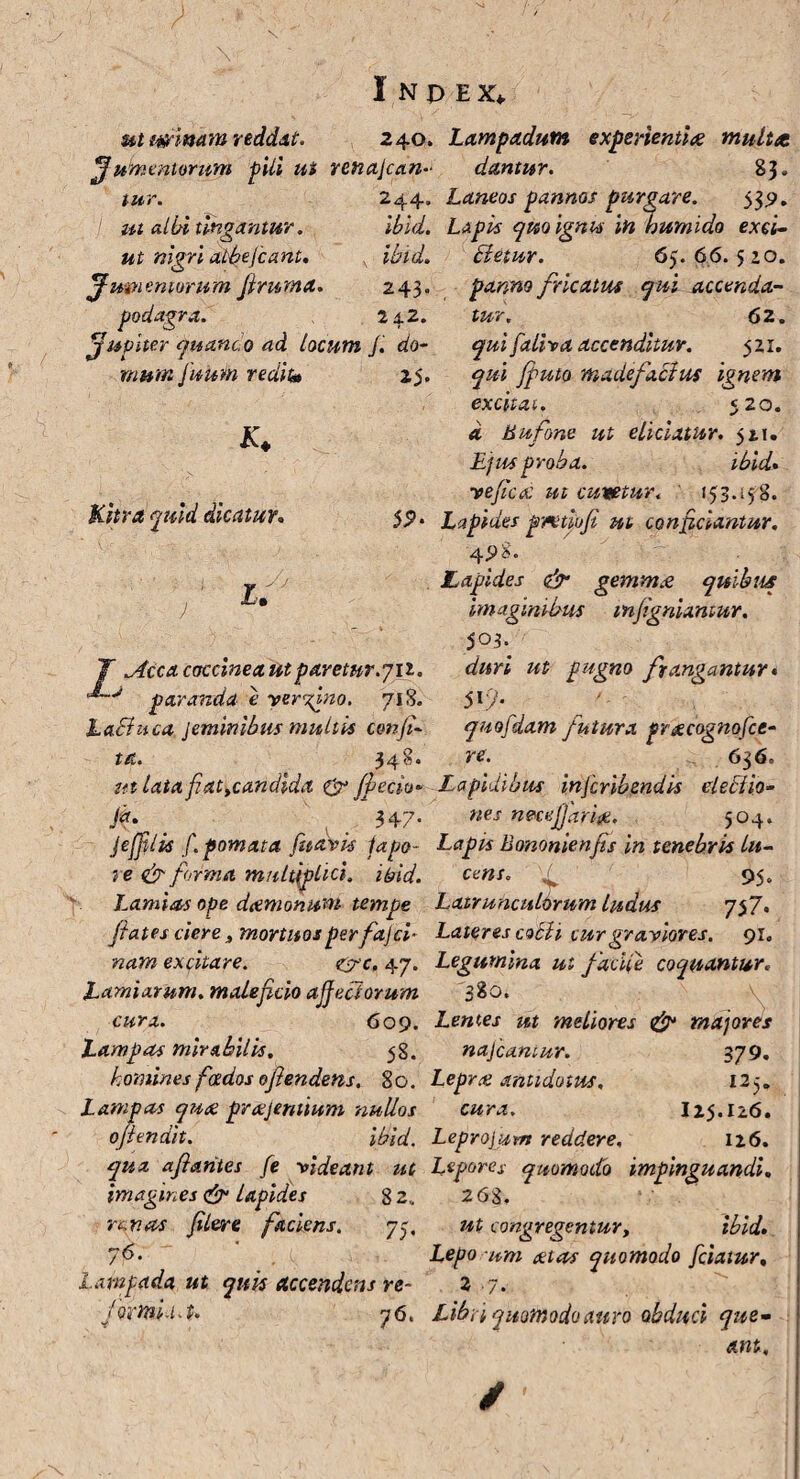 INDEX.
ut urinam reddat. 240.
Jumentorum pili ut renaſcan-
tur. 244.
ut albi tingantur. ibid.
ut nigri albeſcant. ibid.
Jumentorum ſtruma. 243.
podagra. 242.
Jupiter quando ad locum ſ. do-
mum ſuum redit 25.
K.
Kitra quid dicatur. 59.
L.
LAcca coccinea ut paretur. 712.
paranda è verzino. 718.
Lactuca ſeminibus multis conſi-
ta. 348.
ut lata fiat, candida & ſpecio-
ſa. 347.
ſeſſilis ſ. pomata ſuavis ſapo-
re & forma multiplici. ibid.
Lamias ope dæmonum tempe
ſtates ciere, mortuos per faſci-
nam excitare. &c. 47.
Lamiarum. maleficio affectorum
cura. 609.
Lampas mirabilis. 58.
homines fœdos oſtendens. 80.
Lampas quæ præſentium nullos
oſtendit. ibid.
qua aſtantes ſe videant ut
imagines & lapides 82.
ranas ſilere faciens. 75.
76.
Lampada ut quis accendens re-
formi.t. 76.
Lampadum experientiæ multæ
dantur. 83.
Laneos pannos purgare. 539.
Lapis quo ignis in humido exci-
tetur. 65. 66. 520.
panno fricatus qui accenda-
tur. 62.
qui ſaliva accenditur. 521.
qui ſputo madefactus ignem
excitat. 520.
à Bufone ut eliciatur. 511.
Ejus proba. ibid.
veſicæ ut curetur. 153.158.
Lapides pretioſi ut conficiantur.
498.
Lapides & gemmæ quibus
imaginibus inſigniantur.
503.
duri ut pugno frangantur.
519.
quoſdam futura præcognoſce-
re. 636.
Lapidibus inſcribendis electio-
nes neceſſariæ. 504.
Lapis Bononienſis in tenebris lu-
cens. 95.
Latrunculorum ludus 757.
Lateres cocti cur graviores. 91.
Legumina ut facile coquantur.
380.
Lentes ut meliores & majores
naſcantur. 379.
Lepræ antidotus. 125.
cura. 125.126.
Leproſum reddere. 126.
Lepores quomodo impinguandi.
268.
ut congregentur, ibid.
Lepo um ætas quomodo ſciatur.
2 7.
Libri quomodo auro obduci que-
ant.